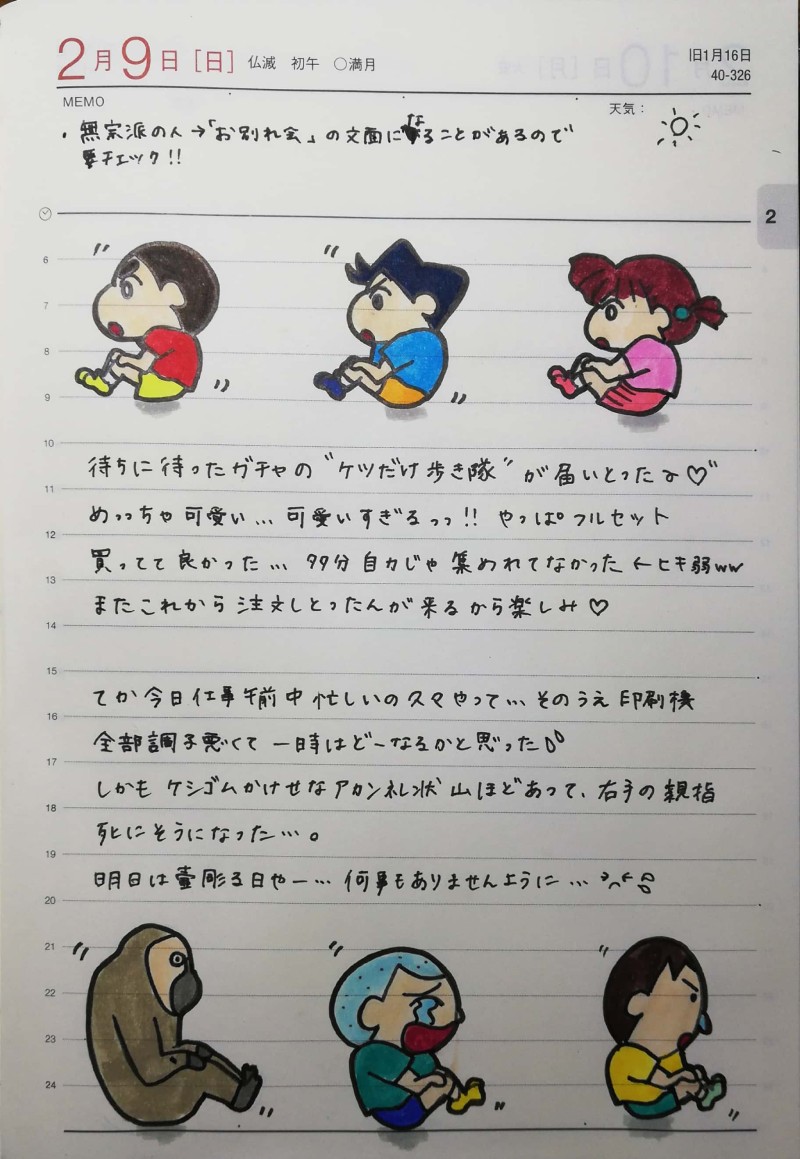 2月9日[日] 仏滅 初午 ○満月
旧1月16日
40-326
MEMO
天気：
・無宗派の人→「お別れ会」の文面になることがあるので
要チェック!!
2
6
7
8
9
10
待ちに待ったガチャの"ケツだけ歩き隊"が届いとったよ♡"
11
めっっちゃ可愛い…可愛いすぎるっっ!! やっぱフルセット
12
買ってて良かった… 99分自力じゃ集めれてなかった←ヒキ弱ww
13
またこれから注文しとったんが来るから楽しみ♡
14
15
てか今日仕事午前中忙しいの久々やって…そのうえ印刷機
16
全部調子悪くて一時はどーなるかと思った
17
しかもケシゴムかけせなアカンネレ状山ほどあって、右手の親指
18
死にそうになった…。
19
明日は壷彫る日やー…何事もありませんように…
20
21
22
23
24